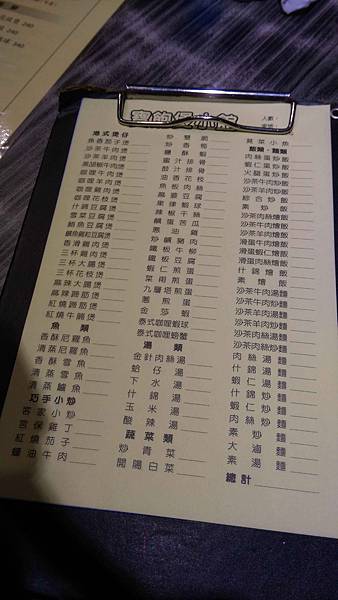 寶飽煲小館
人數：
港式煲仔
魚香茄子煲
沙茶牛肉煲
沙茶羊肉煲
黑胡椒牛肉煲
咖哩牛肉煲
咖哩羊肉煲
咖哩雞肉煲
咖哩花枝煲
什錦豆腐煲
雪菜豆腐煲
鹹魚雞豆腐煲
香滑雞肉煲
三杯雞肉煲
三杯大腸煲
三杯花枝煲
麻辣大腸煲
麻辣蹄筋煲
紅燒蹄筋煲
紅燒牛腩煲
魚類
香酥尼羅魚
清蒸尼羅魚
香酥雪魚
清蒸雪魚
清蒸鱸魚
巧手小炒
客家小炒
宮保雞丁
紅燒茄子
蠔油牛肉
炒雙脆
鹽酥蝦
蜜汁排骨
醋汁排骨
油香花枝
魚板肉絲
麻婆豆腐
果律蝦球
辣椒干絲
鹹蛋苦瓜
蔥油雞
炒鹹豬肉
鐵板牛柳
鐵板豆腐
蝦仁煎蛋
菜甫煎蛋
九層塔煎蛋
蔥煎蛋
金莎蝦
泰式咖哩蝦球
泰式咖哩螃蟹
湯類
金針肉絲湯
蛤仔湯
下水湯
什錦湯
玉米湯
酸辣湯
蔬菜類
炒青菜
開陽白菜
莧菜小魚
飯類、麵類
肉絲蛋炒飯
蝦仁蛋炒飯
火腿蛋炒飯
沙茶牛肉炒飯
沙茶羊肉炒飯
綜合炒飯
素炒飯
沙茶肉絲燴飯
沙茶牛肉燴飯
沙茶羊肉燴飯
滑蛋牛肉燴飯
滑蛋蝦仁燴飯
什錦燴飯
素燴飯
沙茶牛肉湯麵
沙茶牛肉炒麵
沙茶羊肉湯麵
沙茶羊肉炒麵
沙茶肉絲湯麵
沙茶肉絲炒麵
肉絲湯麵
什錦湯麵
蝦仁湯麵
什錦炒麵
蝦仁炒麵
肉絲炒麵
素炒麵
大滷麵
素湯麵
總計